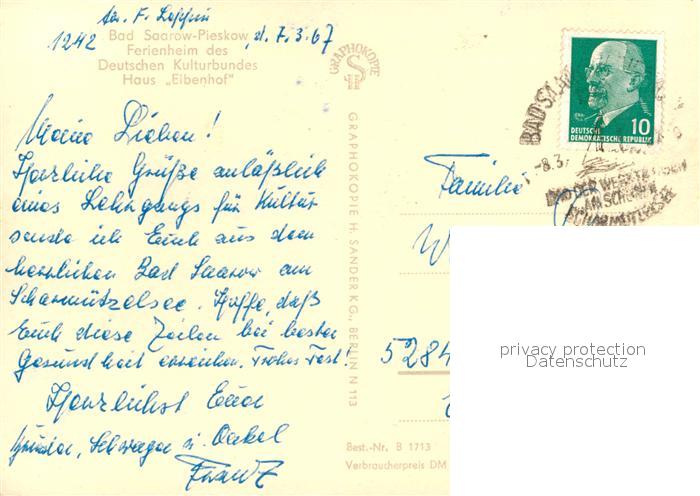 Abs. F.
1242
Bad Saarow-Pieskow, d. 7.3.67
Ferienheim des
Deutschen Kulturbundes
Haus „Eibenhof"
Meine Lieben!
Herzliche Grüße anläßlich
eines Lehrgangs für Kultur
sende ich Euch aus dem
herrlichen Bad Saarow am
Scharmützelsee. Hoffe, daß
Euch diese Zeilen bei bester
Gesundheit erreichen. Frohes Fest!
Herzlichst Euer
Bruder, Schwager u. Onkel
Franz
GRAPHOKOPIE
GRAPHOKOPIE H. SANDER KG., BERLIN N 113
Best.-Nr. B 1713
Verbraucherpreis DM
10
DEUTSCHE
DEMOKRATISCHE REPUBLIK
BAD SAA
-8.3.
BAD DER WERKTÄTIGEN
AM SCHÖNEN
SCHARMÜTZELSEE
Familie
W
5284
privacy protection
Datenschutz